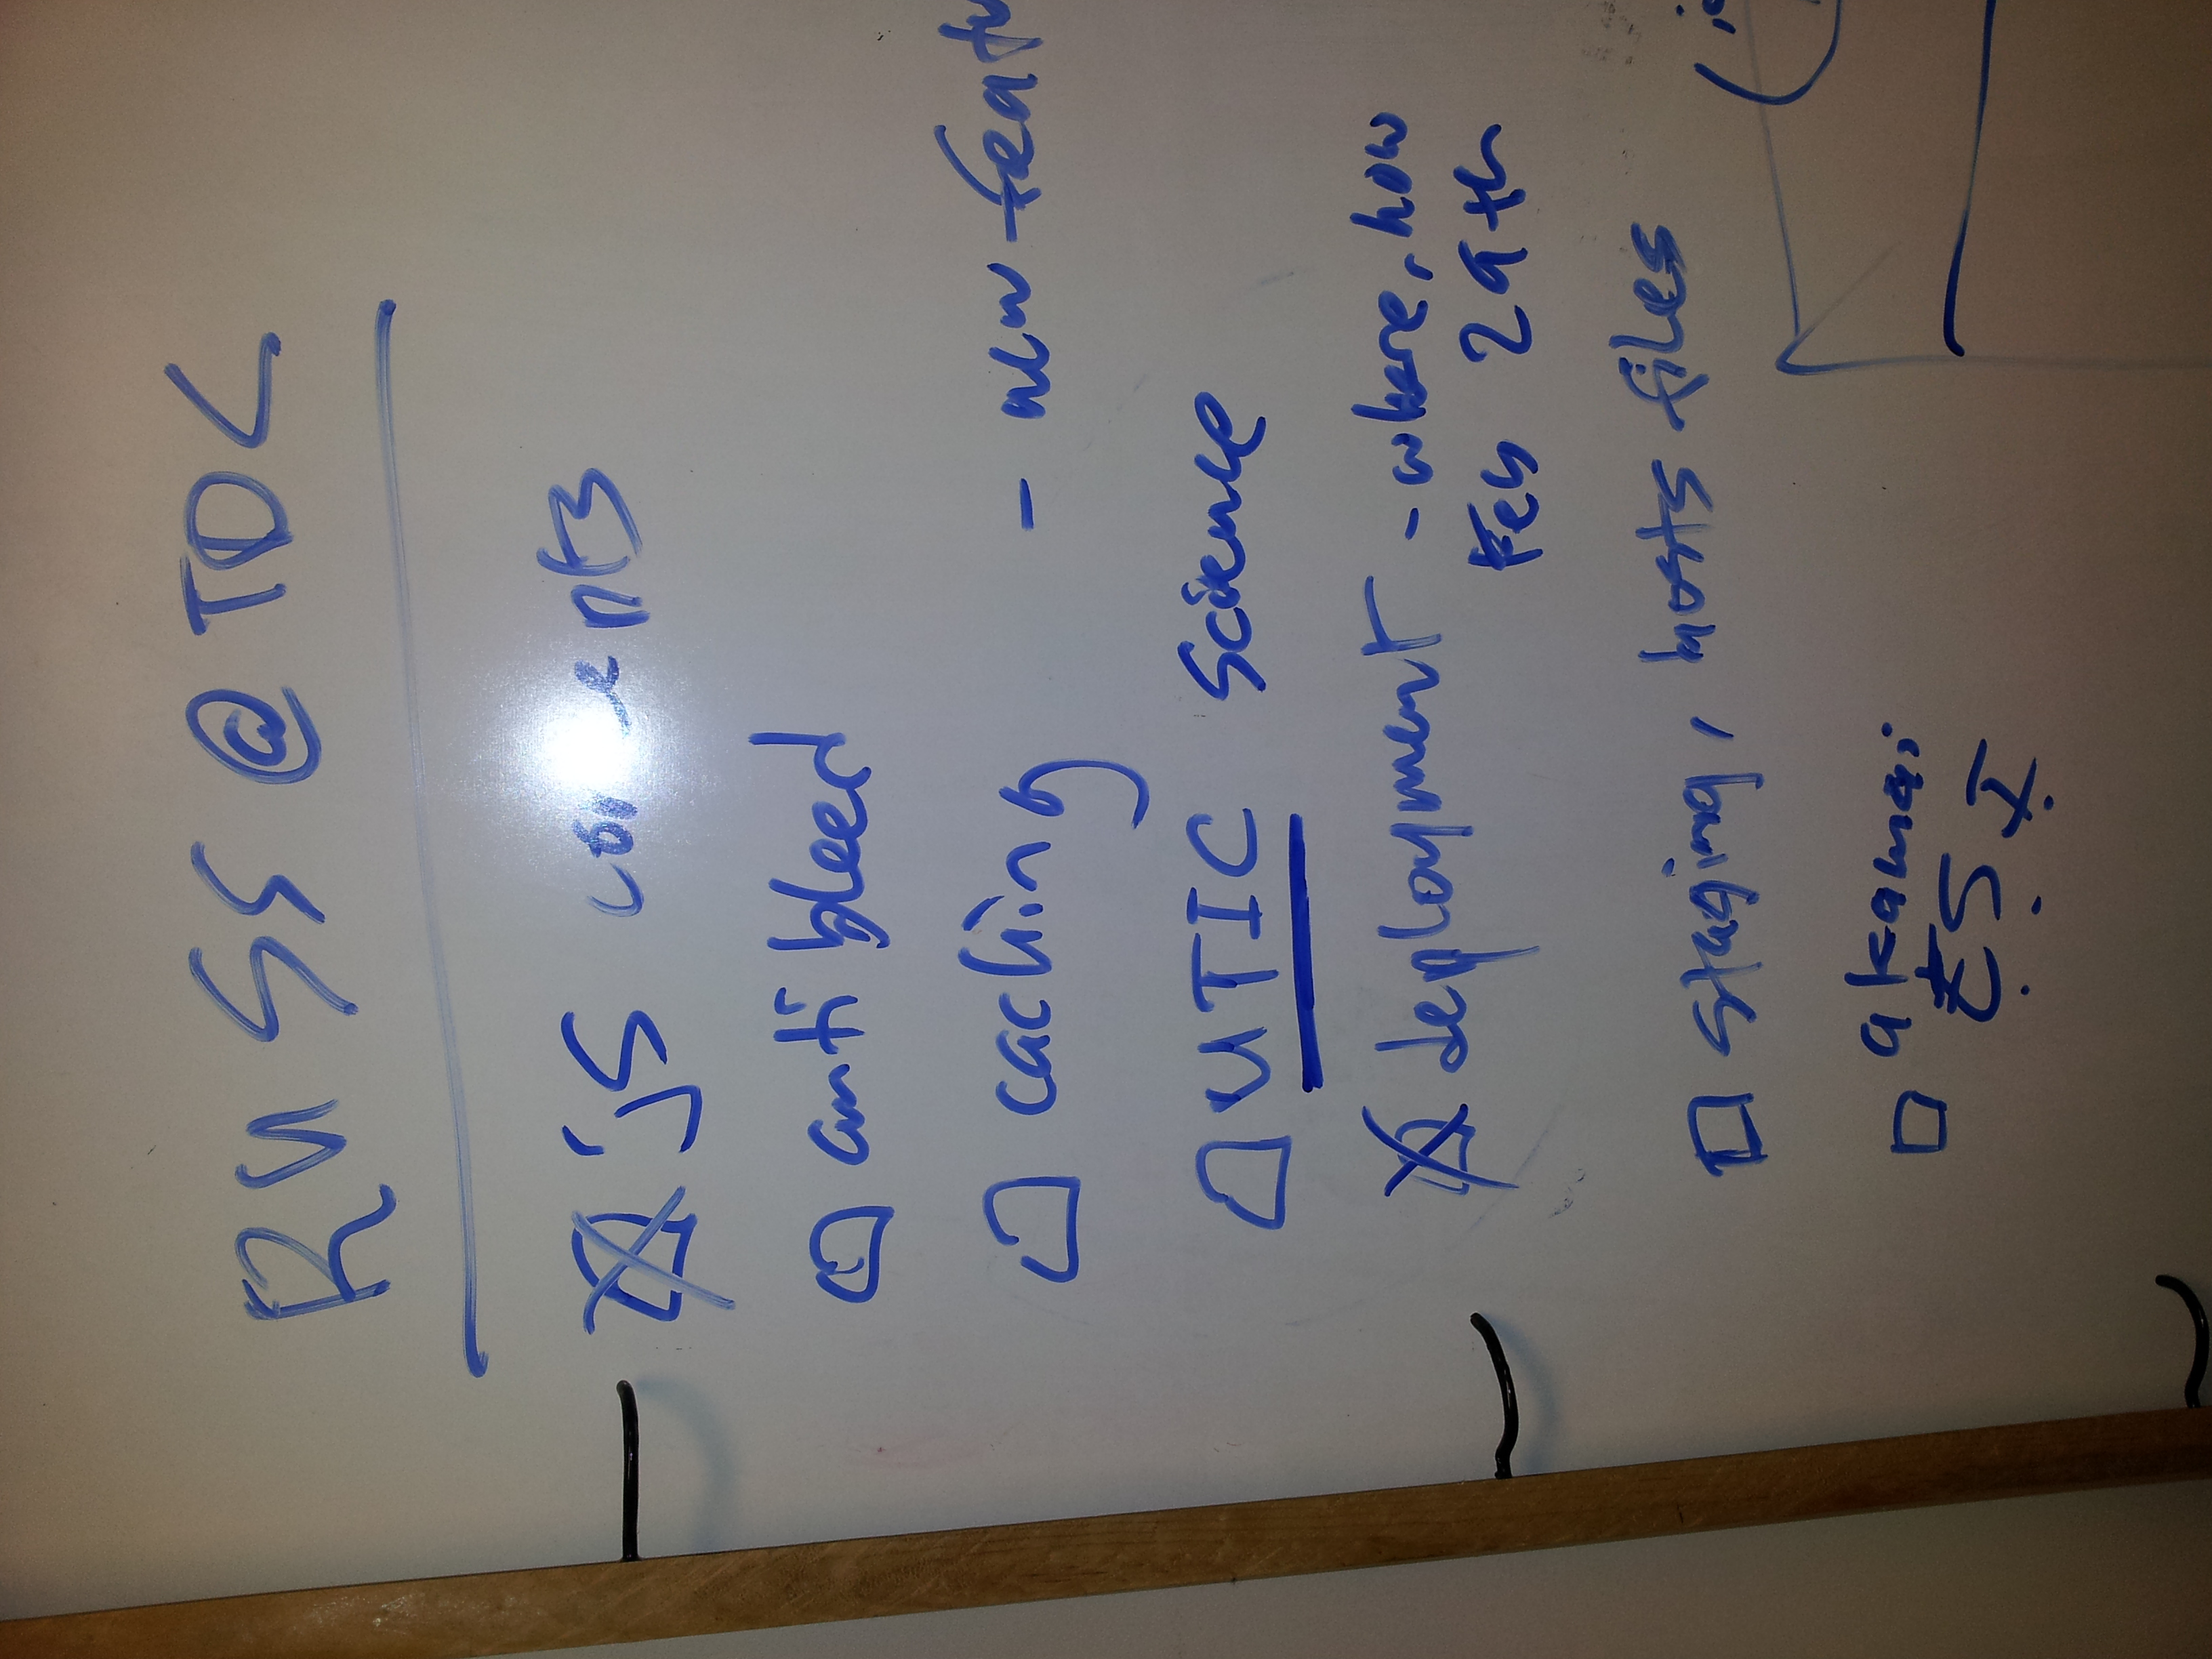 RUSS @ TDC
JS
anti bleed
caching
UTIC Science
deployment - where, how
Feb 29th
staging, hosts files
akamai
ESI